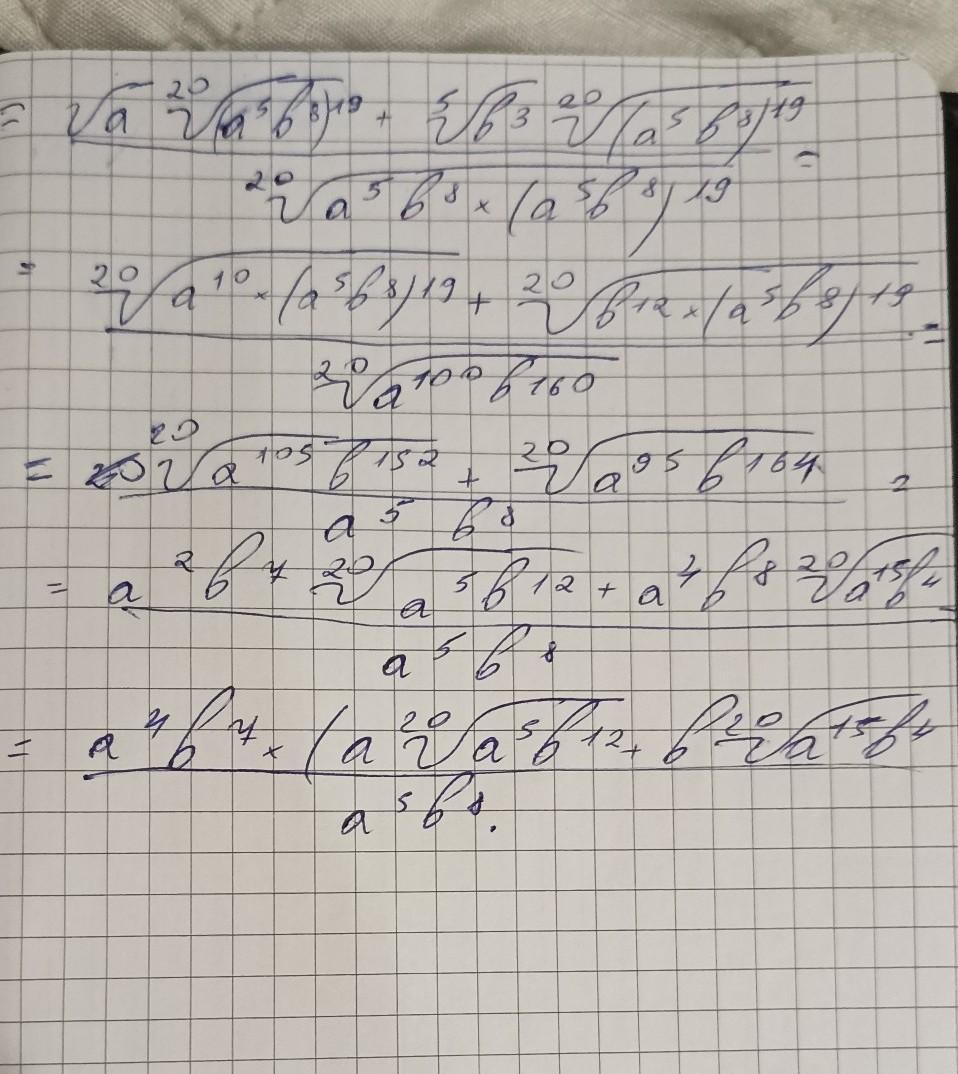 = √a ²⁰√(a⁵b⁸)¹⁹ + ⁵√b³ ²⁰√(a⁵b⁸)¹⁹
²⁰√a⁵b⁸ × (a⁵b⁸)¹⁹ =
= ²⁰√a¹⁰ × (a⁵b⁸)¹⁹ + ²⁰√b¹² × (a⁵b⁸)¹⁹ =
²⁰√a¹⁰⁰b¹⁶⁰
= ²⁰√a¹⁰⁵b¹⁵² + ²⁰√a⁹⁵b¹⁶⁴ =
a⁵ b⁸
= a²b⁷ ²⁰√a⁵b¹² + a⁴b⁸ ²⁰√a¹⁵b⁴
a⁵b⁸
= a⁴b⁷ × (a ²⁰√a⁵b¹² + b ²⁰√a¹⁵b⁴
a⁵b⁸.